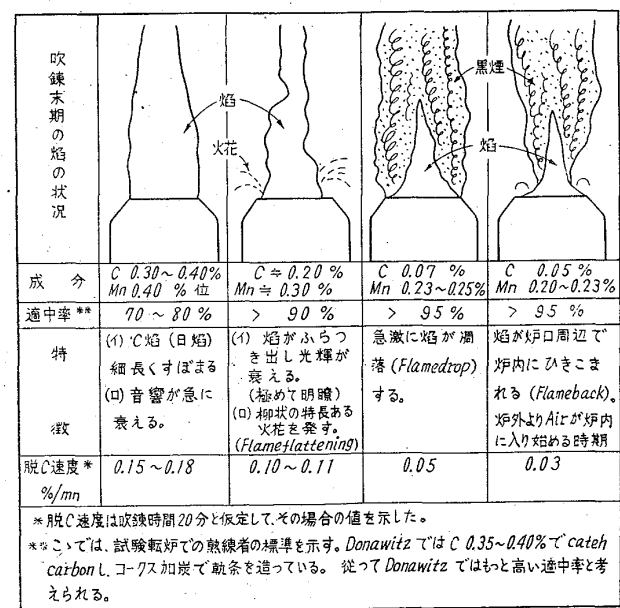 吹錬末期の焰の状況
焰
火花
黒煙
焰
成分
C 0.30～0.40%
Mn 0.40 % 位
C ≒ 0.20 %
Mn ≒ 0.30 %
C 0.07 %
Mn 0.23～0.25%
C 0.05 %
Mn 0.20～0.23%
適中率**
70 ～ 80 %
> 90 %
> 95 %
> 95 %
特徴
(イ) C焰 (日焰)
細長くすぼまる
(ロ) 音響が急に
衰える。
(イ) 焰がふらつ
き出し光輝が
衰える。
(極めて明瞭)
(ロ) 柳状の特長ある
火花を発す。
(Flameflattening)
急激に焰が凋
落 (Flamedrop)
する。
焰が炉口周辺で
炉内にひきこま
れる (Flameback)。
炉外よりAirが炉内
に入り始める時期
脱C速度*
%/mn
0.15～0.18
0.10～0.11
0.05
0.03
*脱C速度は吹錬時間20分と仮定して、その場合の値を示した。
**こゝでは、試験転炉での熟練者の標準を示す。Donawitz では C 0.35～0.40% で cateh
carbonし、コークス加炭で軌条を造っている。 従って Donawitz ではもっと高い適中率と考
えられる。